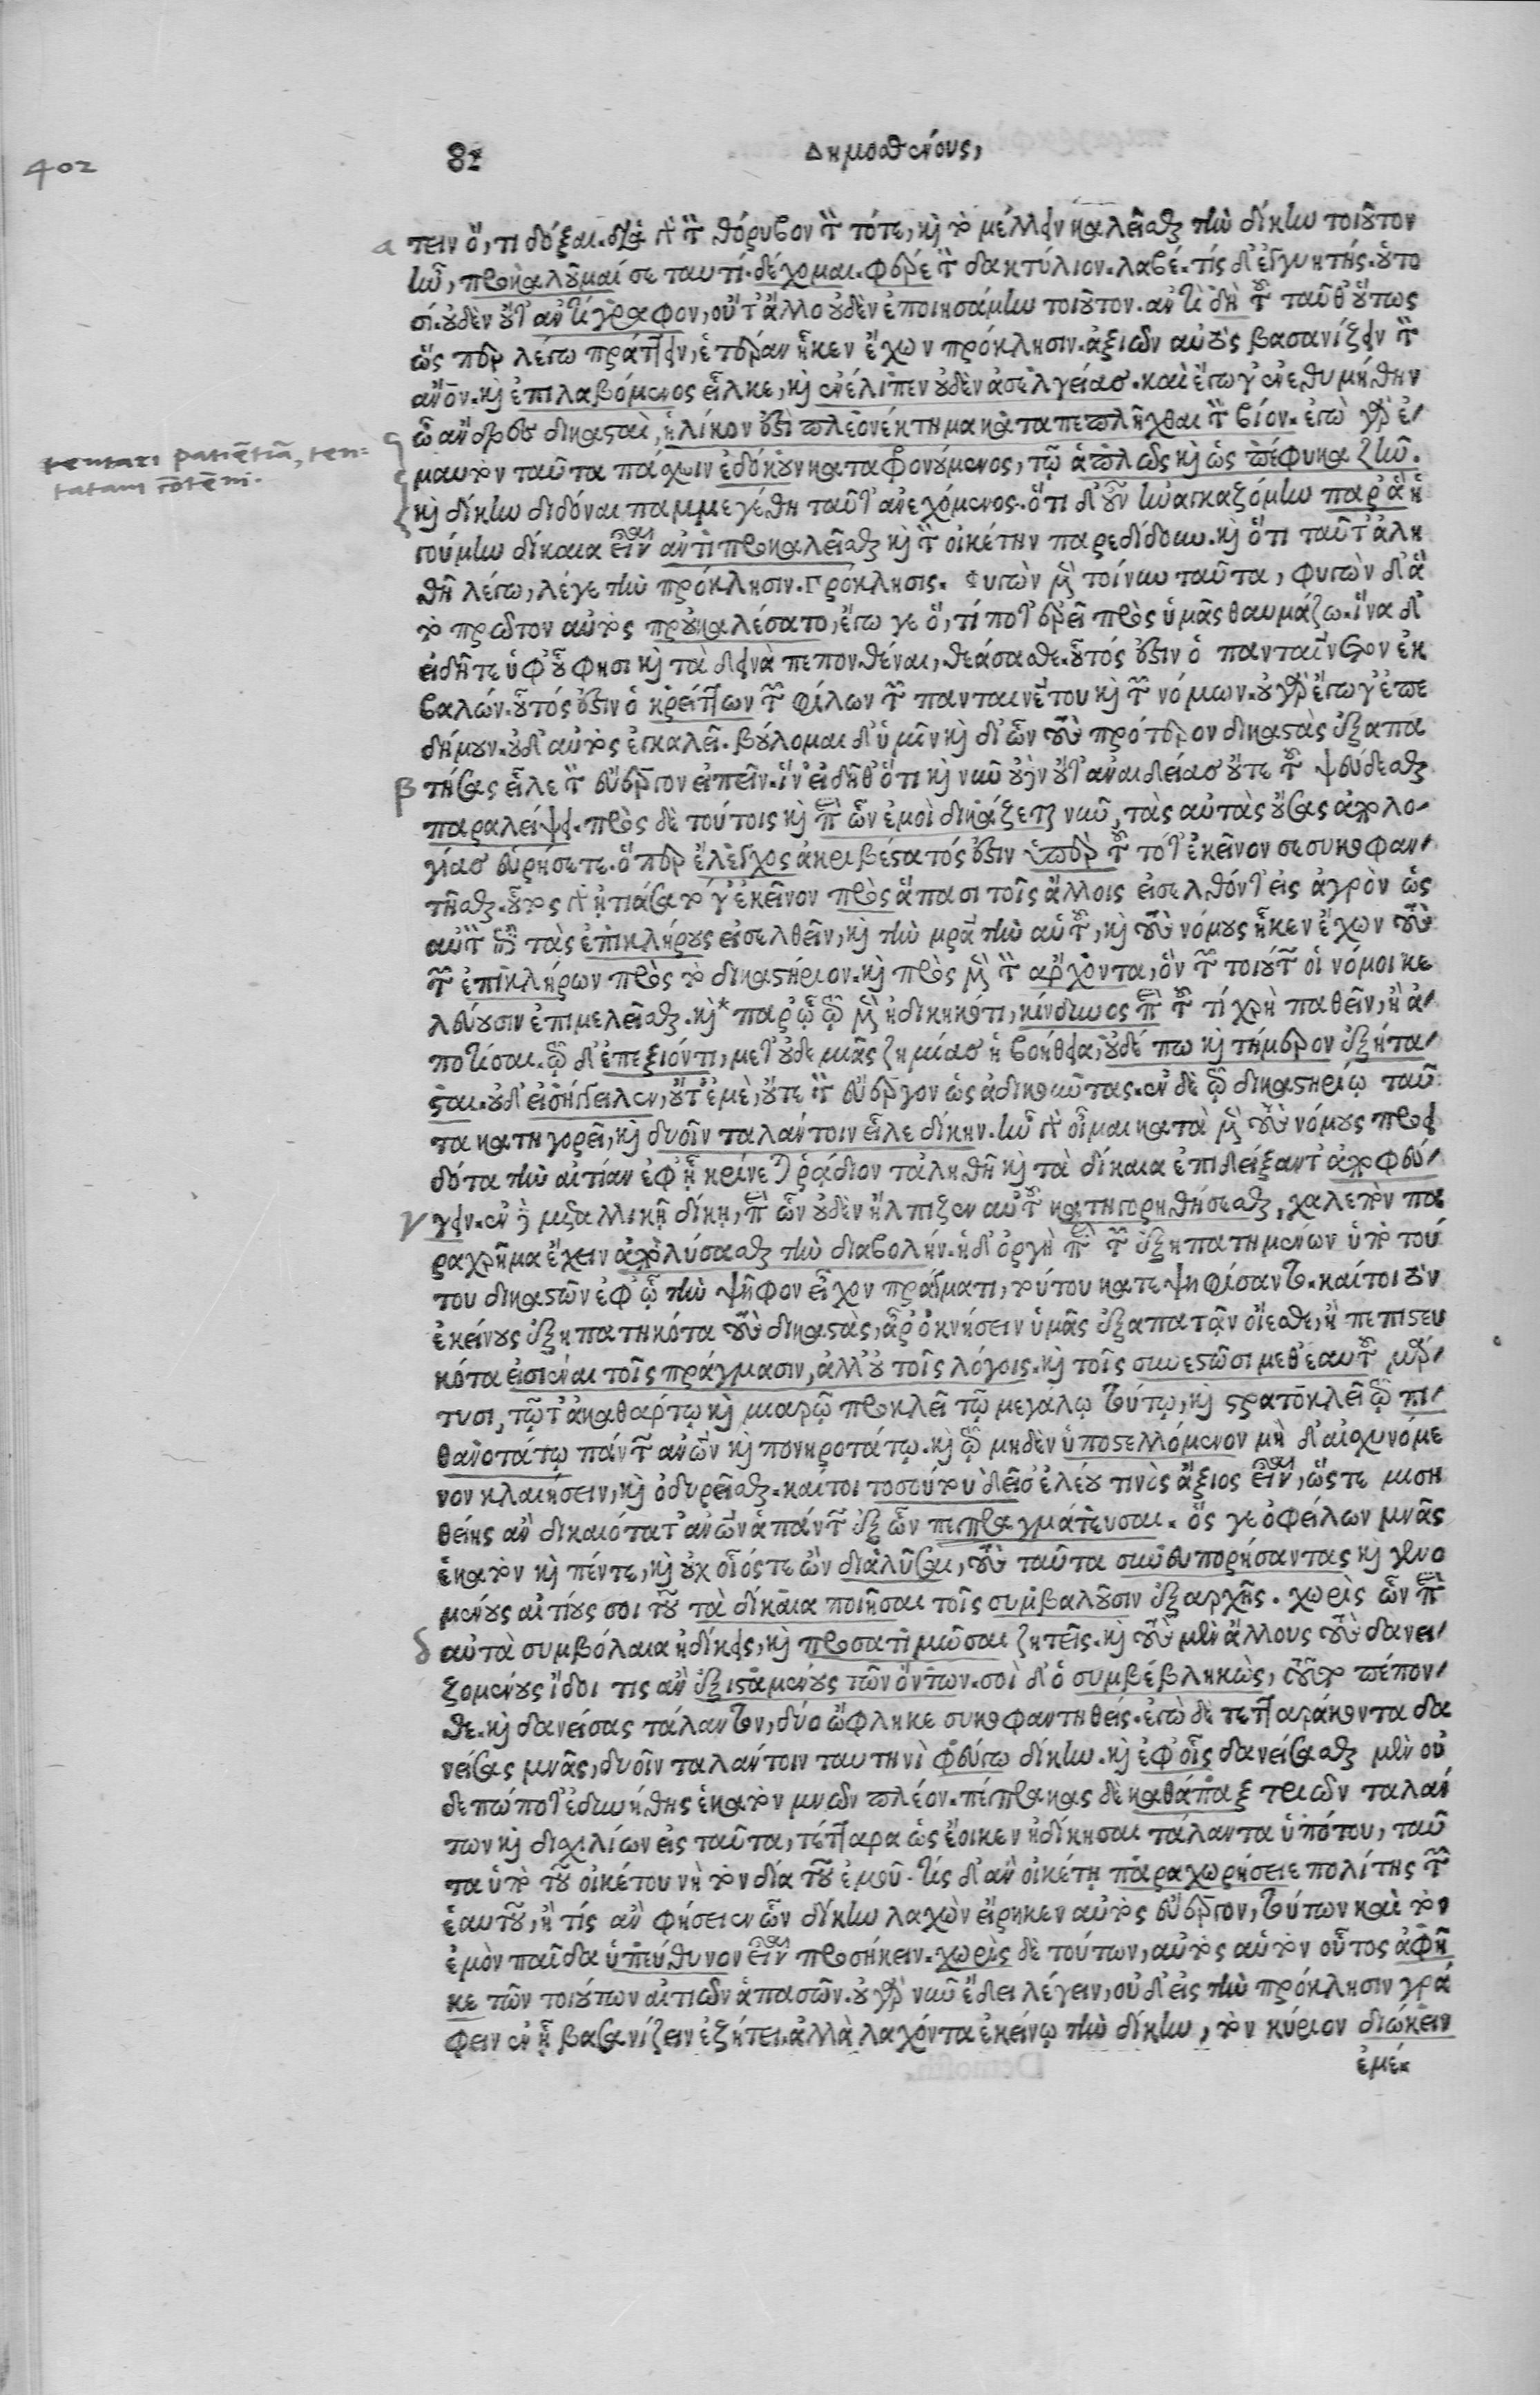 402
82
Δημοσθένους,
α
τειν ὅ, τι δόξαι. διὰ γὰρ τὸν θόρυβον τὸν τότε, καὶ τὸ μέλλειν καλεῖσθαι τὴν δίκην τοιοῦτον
ἦν, προκαλοῦμαί σε ταυτί. δέχομαι. φέρε τὸν δακτύλιον. λαβέ. τίς δ' ἐγγυητής. οὑτο
σί. οὐδὲν οὔτ' ἀντίγραφον, οὔτ' ἄλλο οὐδὲν ἐποιησάμην τοιοῦτον. ἀντὶ δὴ τοῦ ταῦθ' οὕτως
ὥσπερ λέγω πράττειν, ἑτέραν ἧκεν ἔχων πρόκλησιν. ἀξιῶν αὐτὸς βασανίζειν τὸν
ἄνθρωπον. καὶ ἐπιλαβόμενος εἷλκε, καὶ ἐνέλιπεν οὐδὲν ἀσελγείας. καὶ ἔγωγ' ἐνεθυμήθην
ὦ ἄνδρες δικασταὶ, ἡλίκον ἐστὶ πλεονέκτημα καταπεπλῆχθαι τὸν βίον. ἐγὼ γὰρ ἐ-
μαυτὸν ταῦτα πάσχειν ἐδόκουν καταφρονούμενος, τῷ ἁπλῶς καὶ ὡς πέφυκα ζῆν.
tentari patiētiā, ten=
tatam
καὶ δίκην διδόναι παμμεγέθη ταῦτ' ἀνεχόμενος. ὅτι δ' οὖν ἠναγκαζόμην παρ' ἃ ἡ
γούμην δίκαια εἶναι ἀντιπροκαλεῖσθαι καὶ τὸν οἰκέτην παρεδίδουν. καὶ ὅτι ταῦτ' ἀλη
θῆ λέγω, λέγε τὴν πρόκλησιν. Πρόκλησις. Φυγὼν μὲν τοίνυν ταῦτα, φυγὼν δ' ἃ
τὸ πρῶτον αὐτὸς προὐκαλέσατο, ἔγωγε ὅ, τί ποτ' ἐρεῖ πρὸς ὑμᾶς θαυμάζω. ἵνα δ'
εἰδῆτε ὑφ' οὗ φησι καὶ τὰ δεινὰ πεπονθέναι, θεάσασθε. οὗτός ἐστιν ὁ πανταίνετον ἐκ
βαλών. οὗτός ἐστιν ὁ κρείττων τῶν φίλων τῶν πανταινέτου καὶ τῶν νόμων. οὐ γὰρ ἔγωγ' ἐπε
δήμουν. οὐδ' αὐτὸς ἐγκαλεῖ. βούλομαι δ' ὑμῖν καὶ δι' ὧν τοὺς πρότερον δικαστὰς ἐξαπα
β
τήσας εἷλε τὸν εὔεργον εἰπεῖν. ἵν' εἰδῆθ' ὅτι καὶ νῦν οὐδὲν οὔτ' ἀναιδείας οὔτε τοῦ ψεύδεσθαι
παραλείψει. πρὸς δὲ τούτοις καὶ περὶ ὧν ἐμοὶ δικάζεται νῦν, τὰς αὐτὰς οὔσας ἀπολο-
γίας εὑρήσετε. ὅπερ ἔλεγχος ἀκριβέστατός ἐστιν ὑπὲρ τοῦ τότ' ἐκεῖνον σεσυκοφαν-
τῆσθαι. οὗτος γὰρ ᾐτιάσατό γ' ἐκεῖνον πρὸς ἅπασι τοῖς ἄλλοις εἰσελθόντ' εἰς ἀγρὸν ὡς
αὐτὸν ἐπὶ τὰς ἐπικλήρους εἰσελθεῖν, καὶ τὴν μητέρα τὴν αὑτοῦ, καὶ τοὺς νόμους ἧκεν ἔχων τοὺς
τῶν ἐπικλήρων πρὸς τὸ δικαστήριον. καὶ πρὸς μὲν τὸν ἄρχοντα, ὃν τῶν τοιούτων οἱ νόμοι κε
λεύουσιν ἐπιμελεῖσθαι. καὶ* παρ' ᾧ τῷ μὲν ἠδικηκότι, κίνδυνος περὶ τοῦ τί χρὴ παθεῖν, ἢ ἀ-
ποτίσαι. τῷ δ' ἐπεξιόντι, μετ' οὐδεμιᾶς ζημίας ἡ βοήθεια, οὐδέ πω καὶ τήμερον ἐξήτα-
σται. οὐδ' εἰσήγγειλεν, οὔτ' ἐμὲ, οὔτε τὸν εὔεργον ὡς ἀδικοῦντας. ἐν δὲ τῷ δικαστηρίῳ ταῦ
τα κατηγορεῖ, καὶ δυοῖν ταλάντοιν εἷλε δίκην. ἦν γὰρ οἶμαι κατὰ μὲν τοὺς νόμους προει
δότα τὴν αἰτίαν ἐφ' ᾗ κρίνεται ῥᾴδιον τἀληθῆ καὶ τὰ δίκαια ἐπιδείξαντ' ἀποφεύ-
γ
γειν. ἐν δὲ μεταλλικῇ δίκῃ, περὶ ὧν οὐδὲν ἤλπιζεν αὐτοῦ κατηγορηθήσεσθαι, χαλεπὸν πα
ραχρῆμα ἔχειν ἀπολύσασθαι τὴν διαβολήν. ἡ δ' ὀργὴ περὶ τῶν ἐξηπατημένων ὑπὸ τού
του δικαστῶν ἐφ' ᾧ τὴν ψῆφον εἶχον πράγματι, τούτου κατεψηφίσαντο. καίτοι τὸν
ἐκείνους ἐξηπατηκότα τοὺς δικαστὰς, ἆρ' ὀκνήσειν ὑμᾶς ἐξαπατᾶν οἴεσθε, ἢ πεπιστευ
κότα εἰσιέναι τοῖς πράγμασιν, ἀλλ' οὐ τοῖς λόγοις. καὶ τοῖς συνεστῶσι μεθ' ἑαυτοῦ μάρ-
τυσι, τῷ τ' ἀκαθάρτῳ καὶ μιαρῷ προκλεῖ τῷ μεγάλῳ τούτῳ, καὶ στρατοκλεῖ τῷ πι-
θανοτάτῳ πάντων ἀνθρώπων καὶ πονηροτάτῳ. καὶ τῷ μηδὲν ὑποστελλόμενον μὴ δ' αἰσχυνόμε
νον κλαιήσειν, καὶ ὀδυρεῖσθαι. καίτοι τοσούτου δεῖς ἐλέου τινὸς ἄξιος εἶναι, ὥστε μιση
θείης ἂν δικαιότατ' ἀνθρώπων ἁπάντων ἐξ ὧν πεπραγμάτευσαι. ὅς γε ὀφείλων μνᾶς
ἑκατὸν καὶ πέντε, καὶ οὐχ οἷός τε ὢν διαλῦσαι, τοὺς ταῦτα συνευπορήσαντας καὶ γενο
μένους αἰτίους σοι τοῦ τὰ δίκαια ποιῆσαι τοῖς συμβαλοῦσιν ἐξαρχῆς. χωρὶς ὧν περὶ
δ
αὐτὰ συμβόλαια ἠδίκεις, καὶ προσατιμῶσαι ζητεῖς. καὶ τοὺς μὲν ἄλλους τοὺς δανει-
ζομένους ἴδοι τις ἂν ἐξισταμένους τῶν ὄντων. σοὶ δ' ὁ συμβεβληκὼς, τοῦτο πέπον-
θε. καὶ δανείσας τάλαντον, δύο ὤφληκε συκοφαντηθείς. ἐγὼ δὲ τετταράκοντα δα
νείσας μνᾶς, δυοῖν ταλάντοιν ταυτηνὶ φεύγω δίκην. καὶ ἐφ' οἷς δανείσασθαι μὲν οὐ
δεπώποτ' ἐδυνήθης ἑκατὸν μνῶν πλέον. πέπρακας δὲ καθάπαξ τριῶν ταλάν
των καὶ δισχιλίων εἰς ταῦτα, τέτταρα ὡς ἔοικεν ἠδίκησαι τάλαντα ὑπό του, ταῦ
τα ὑπὸ τοῦ οἰκέτου νὴ τὸν δία τοῦ ἐμοῦ. τίς δ' ἂν οἰκέτῃ παραχωρήσειε πολίτης τῶν
ἑαυτοῦ, ἢ τίς ἂν φήσειεν ὧν δίκην λαχὼν εἴρηκεν αὐτὸς εὔεργον, τούτων καὶ τὸν
ἐμὸν παῖδα ὑπεύθυνον εἶναι προσήκειν. χωρὶς δὲ τούτων, αὐτὸς αὐτὸν οὗτος ἀφῆ
κε τῶν τοιούτων αἰτιῶν ἁπασῶν. οὐ γὰρ νῦν ἔδει λέγειν, οὐδ' εἰς τὴν πρόκλησιν γρά
φειν ἐν ᾗ βασανίζειν ἐζήτει. ἀλλὰ λαχόντα ἐκείνῳ τὴν δίκην, τὸν κύριον διώκειν
ἐμέ.